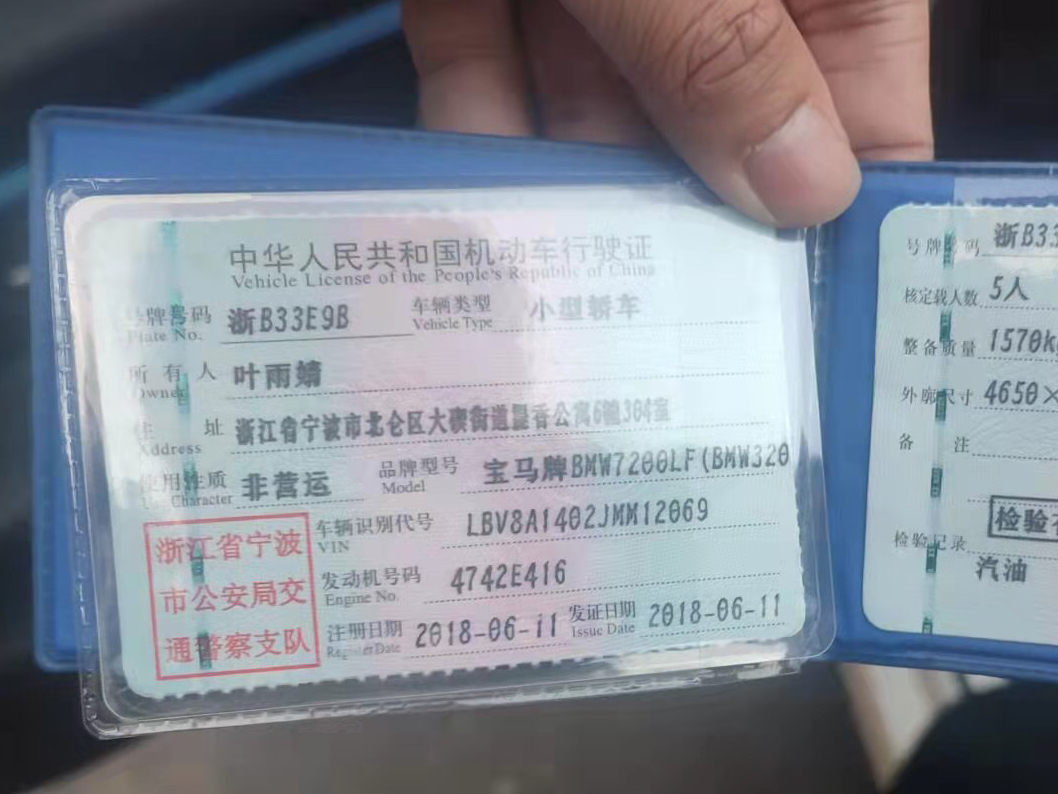 中华人民共和国机动车行驶证
Vehicle License of the People's Republic of China
号牌号码 浙B33E9B 车辆类型 小型轿车
Plate No. Vehicle Type
所有人 叶雨婻
Owner
住址 浙江省宁波市北仑区大碶街道 香公寓6幢304室
Address
使用性质 非营运 品牌型号 宝马牌BMW7200LF(BMW320
Character Model
浙江省宁波
市公安局交
通警察支队
车辆识别代号 LBV8A1402JMM12069
VIN
发动机号码 4742E416
Engine No.
注册日期 2018-06-11 发证日期 2018-06-11
Register Date Issue Date
号牌号码 浙B33
核定载人数 5人
整备质量 1570k
外廓尺寸 4650×
备注
检验
检验记录
汽油